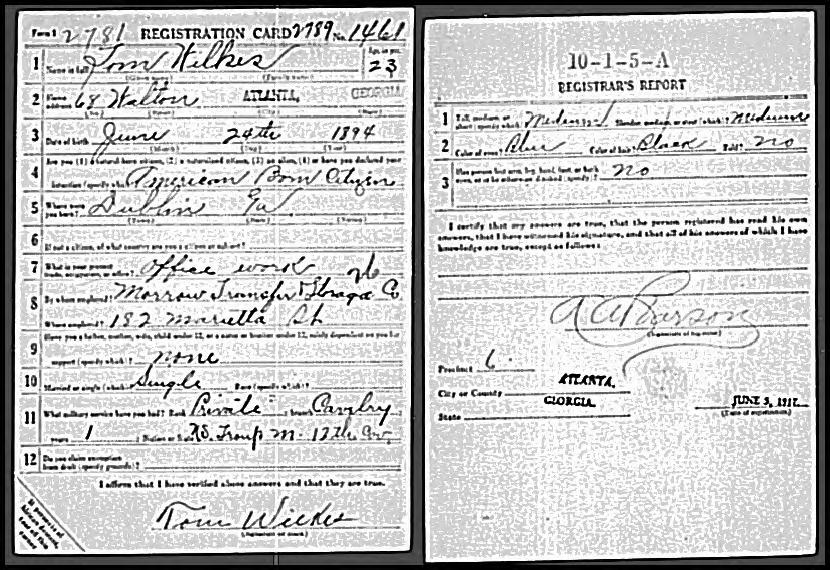 Form 1 2781 REGISTRATION CARD 2789 No. 1461
1 Name in full Tom Wilkes Age, in yrs. 23
(Given name) (Family name)
2 Home address 68 Walton ATLANTA, GEORGIA
(No.) (Street) (City) (State)
3 Date of birth June 24th 1894
(Month) (Day) (Year)
4 Are you (1) a natural-born citizen, (2) a naturalized citizen, (3) an alien, (4) or have you declared your
intention (specify which)? American Born Citizen
5 Where were you born? Dublin Ga
(Town) (State) (Nation)
6 If not a citizen, of what country are you a citizen or subject?
7 What is your present trade, occupation, or office? Office work 26
8 By whom employed? Morrow Transfer & Storage Co
Where employed? 182 Marietta St
9 Have you a father, mother, wife, child under 12, or a sister or brother under 12, solely dependent on you for
support (specify which)? none
10 Married or single (which)? Single Race (specify which)?
11 What military service have you had? Rank Private ; branch Cavalry
years 1 ; Nation or State US. Troup M. 13th Cav,
12 Do you claim exemption from draft (specify grounds)?
I affirm that I have verified above answers and that they are true.
Tom Wilkes
(Signature or mark)
If person is of African descent, tear off this corner
10-1-5-A
REGISTRAR'S REPORT
1 Tall, medium, or short (specify which)? Medium Slender, medium, or stout (which)? Medium
2 Color of eyes? Blue Color of hair? Black Bald? No
3 Has person lost arm, leg, hand, foot, or both eyes, or is he otherwise disabled (specify)? No
I certify that my answers are true, that the person registered has read his own
answers, that I have witnessed his signature, and that all of his answers of which I have
knowledge are true, except as follows:
(Signature of registrar)
Precinct 6
City or County ATLANTA,
State GEORGIA.
JUNE 5, 1917.
(Date of registration)